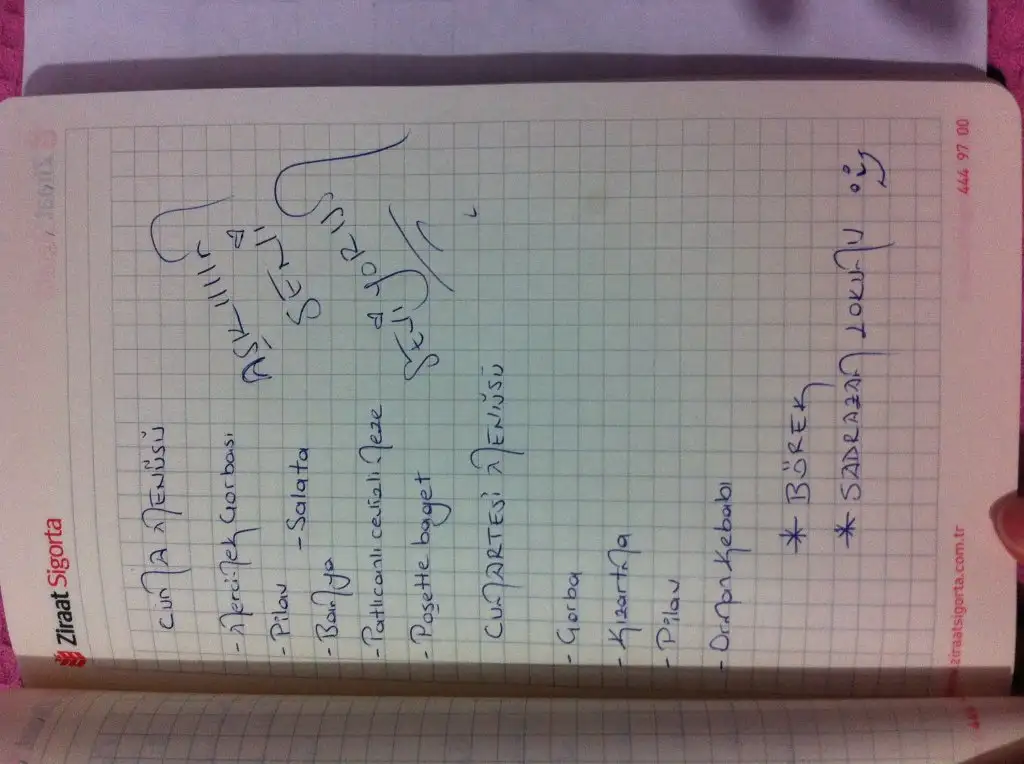 Ziraat Sigorta
CUMA MENÜSÜ
- Mercimek Çorbası
- Pilav
- Salata
- Bamya
- Patlıcanlı cevizli meze
- Poşette baget
AŞKIIIIM
SENİ
SEVİYORUM
CUMARTESİ MENÜSÜ
- Çorba
- Kızartma
- Pilav
- Orman Kebabı
* BÖREK
* SADRAZAM LOKUMU
.ziraatsigorta.com.tr
444 97 00